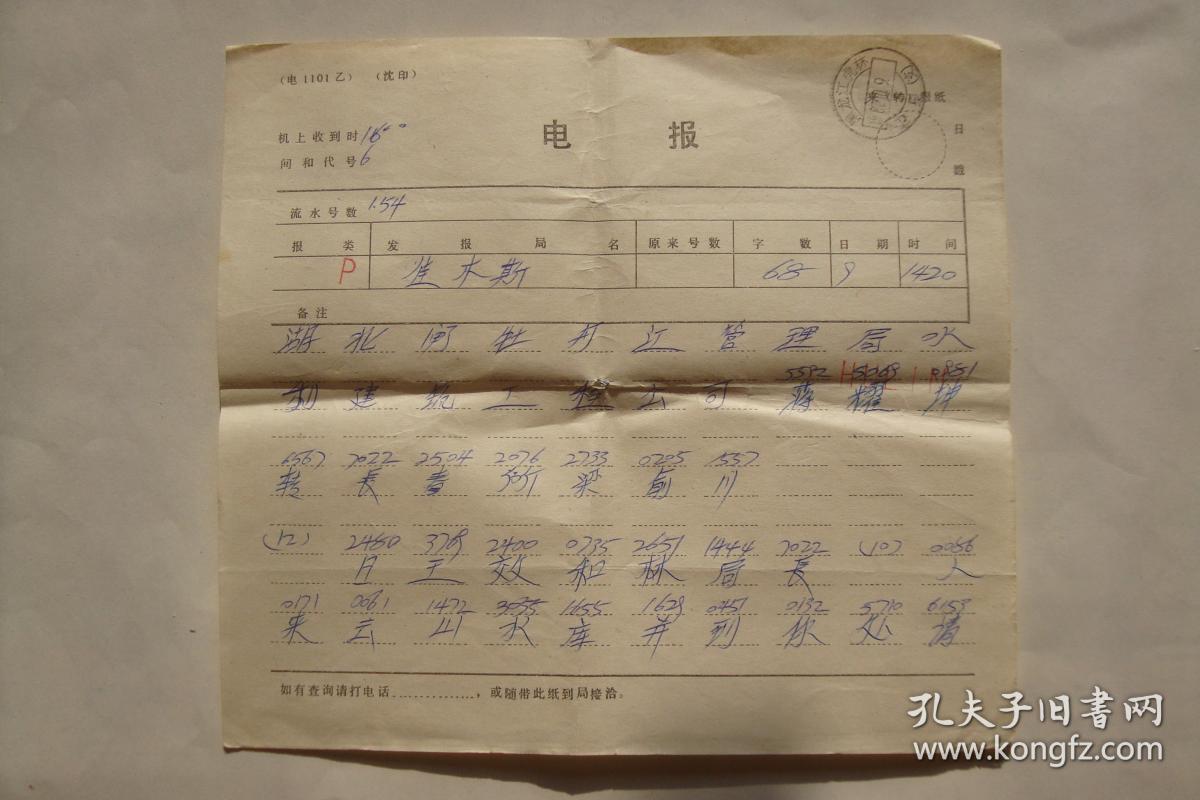 (电1101乙) (沈印)
来(转)报纸
机上收到时 16
间和代号 6
电 报
日
戳
流水号数 154
报类 发报局名 原来号数 字数 日期 时间
P 佳木斯 68 9 1420
备注
湖北 牡丹江管理局水
5592 0851
利建筑工程公司蒋耀坤
6567 7022 2504 2076 2733 0205 1557
转长春 梁俞川
(12) 2480 3769 2400 0735 2651 1444 7022 (10) 0086
日王效和林局长 人
0171 0061 1472 3055 1655 1629 0451 0132 5710 6153
来云山水库并到你处请
如有查询请打电话..............，或随带此纸到局接洽。
孔夫子旧書网
www.kongfz.com